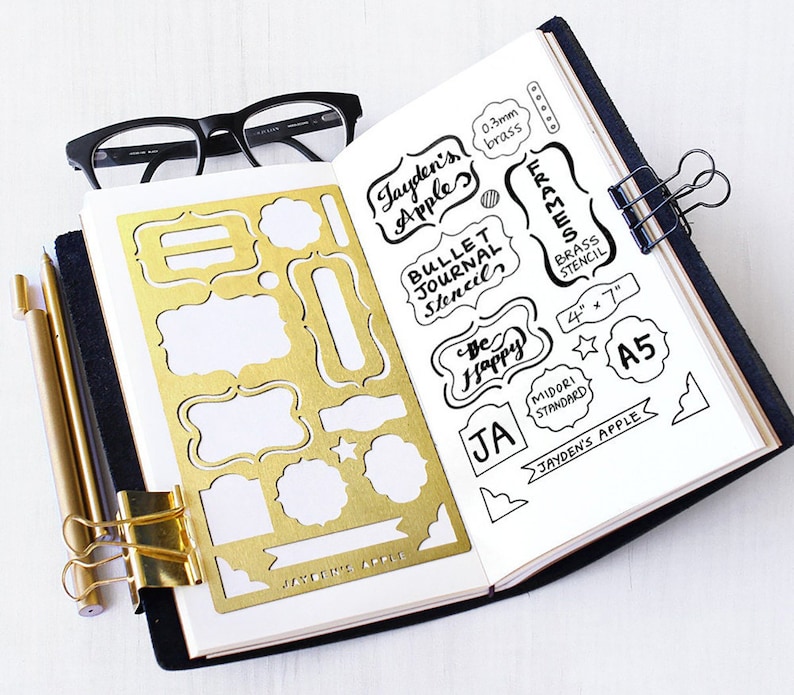 0.3mm
brass
Jayden's
Apple
FRAMES
BRASS
STENCIL
BULLET
JOURNAL
Stencil
4" x 7"
Be
Happy
A5
MIDORI
STANDARD
JA
JAYDEN'S APPLE
JAYDEN'S APPLE